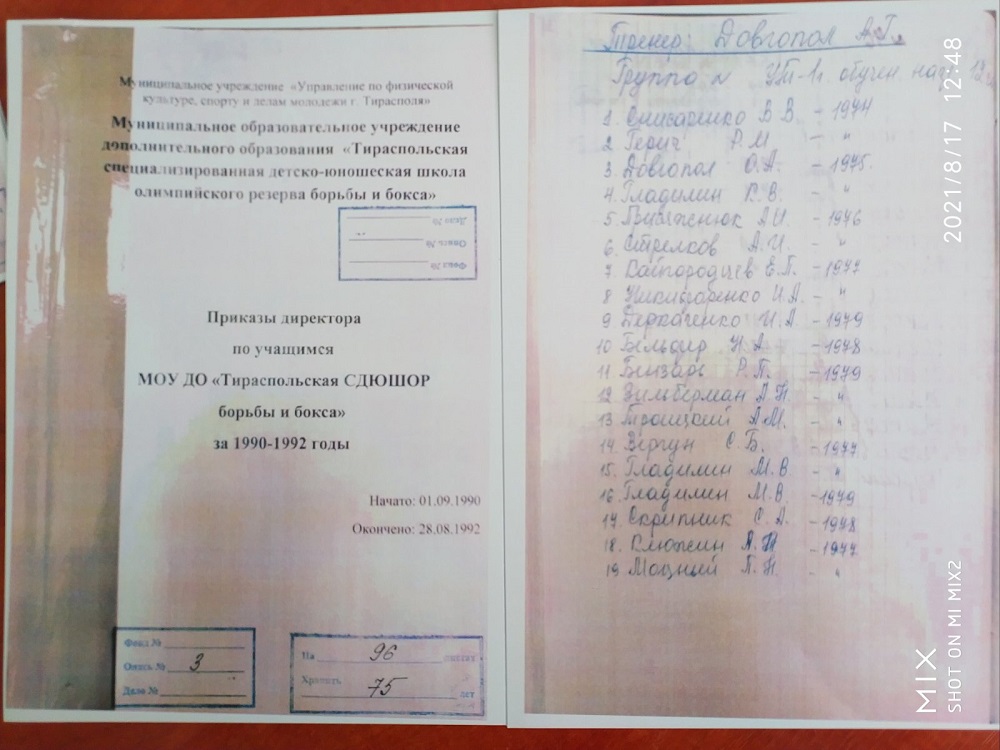 Муниципальное учреждение «Управление по физической
культуре, спорту и делам молодежи г. Тирасполя»
Муниципальное образовательное учреждение
дополнительного образования «Тираспольская
специализированная детско-юношеская школа
олимпийского резерва борьбы и бокса»
Дело №
Опись №
Фонд №
Приказы директора
по учащимся
МОУ ДО «Тираспольская СДЮШОР
борьбы и бокса»
за 1990-1992 годы
Начато: 01.09.1990
Окончено: 28.08.1992
Фонд №
Опись № 3
Дело №
На 96 листах
Хранить 75 лет
Тренер: Довгопол А.Г.
Группа УТ-1г. обучен.
1. В.В. - 1974
2 Герич Р.М - "
3. Довгопол О.А. - 1975.
4. Гладилин В. - "
5. А.И. - 1976
6. Стрелков А.И. - "
7 Кайгородцев Е.П. - 1977
8 Никифоренко И.А. - "
9 Деркаченко И.А - 1979
10 Н.А. - 1978
11 Р.П. - 1979
12 Зильберман А.Н. - "
13 Троицкий А.М. - "
14. Вергун С.Б. - 1977
15. Гладилин М.В. - "
16. Гладилин М.В. - 1979
17. Скрипник С.А. - 1978
18. - 1977
19 Мощный П.Н. - "
2021/8/17 12:48
MIX
SHOT ON MI MIX2